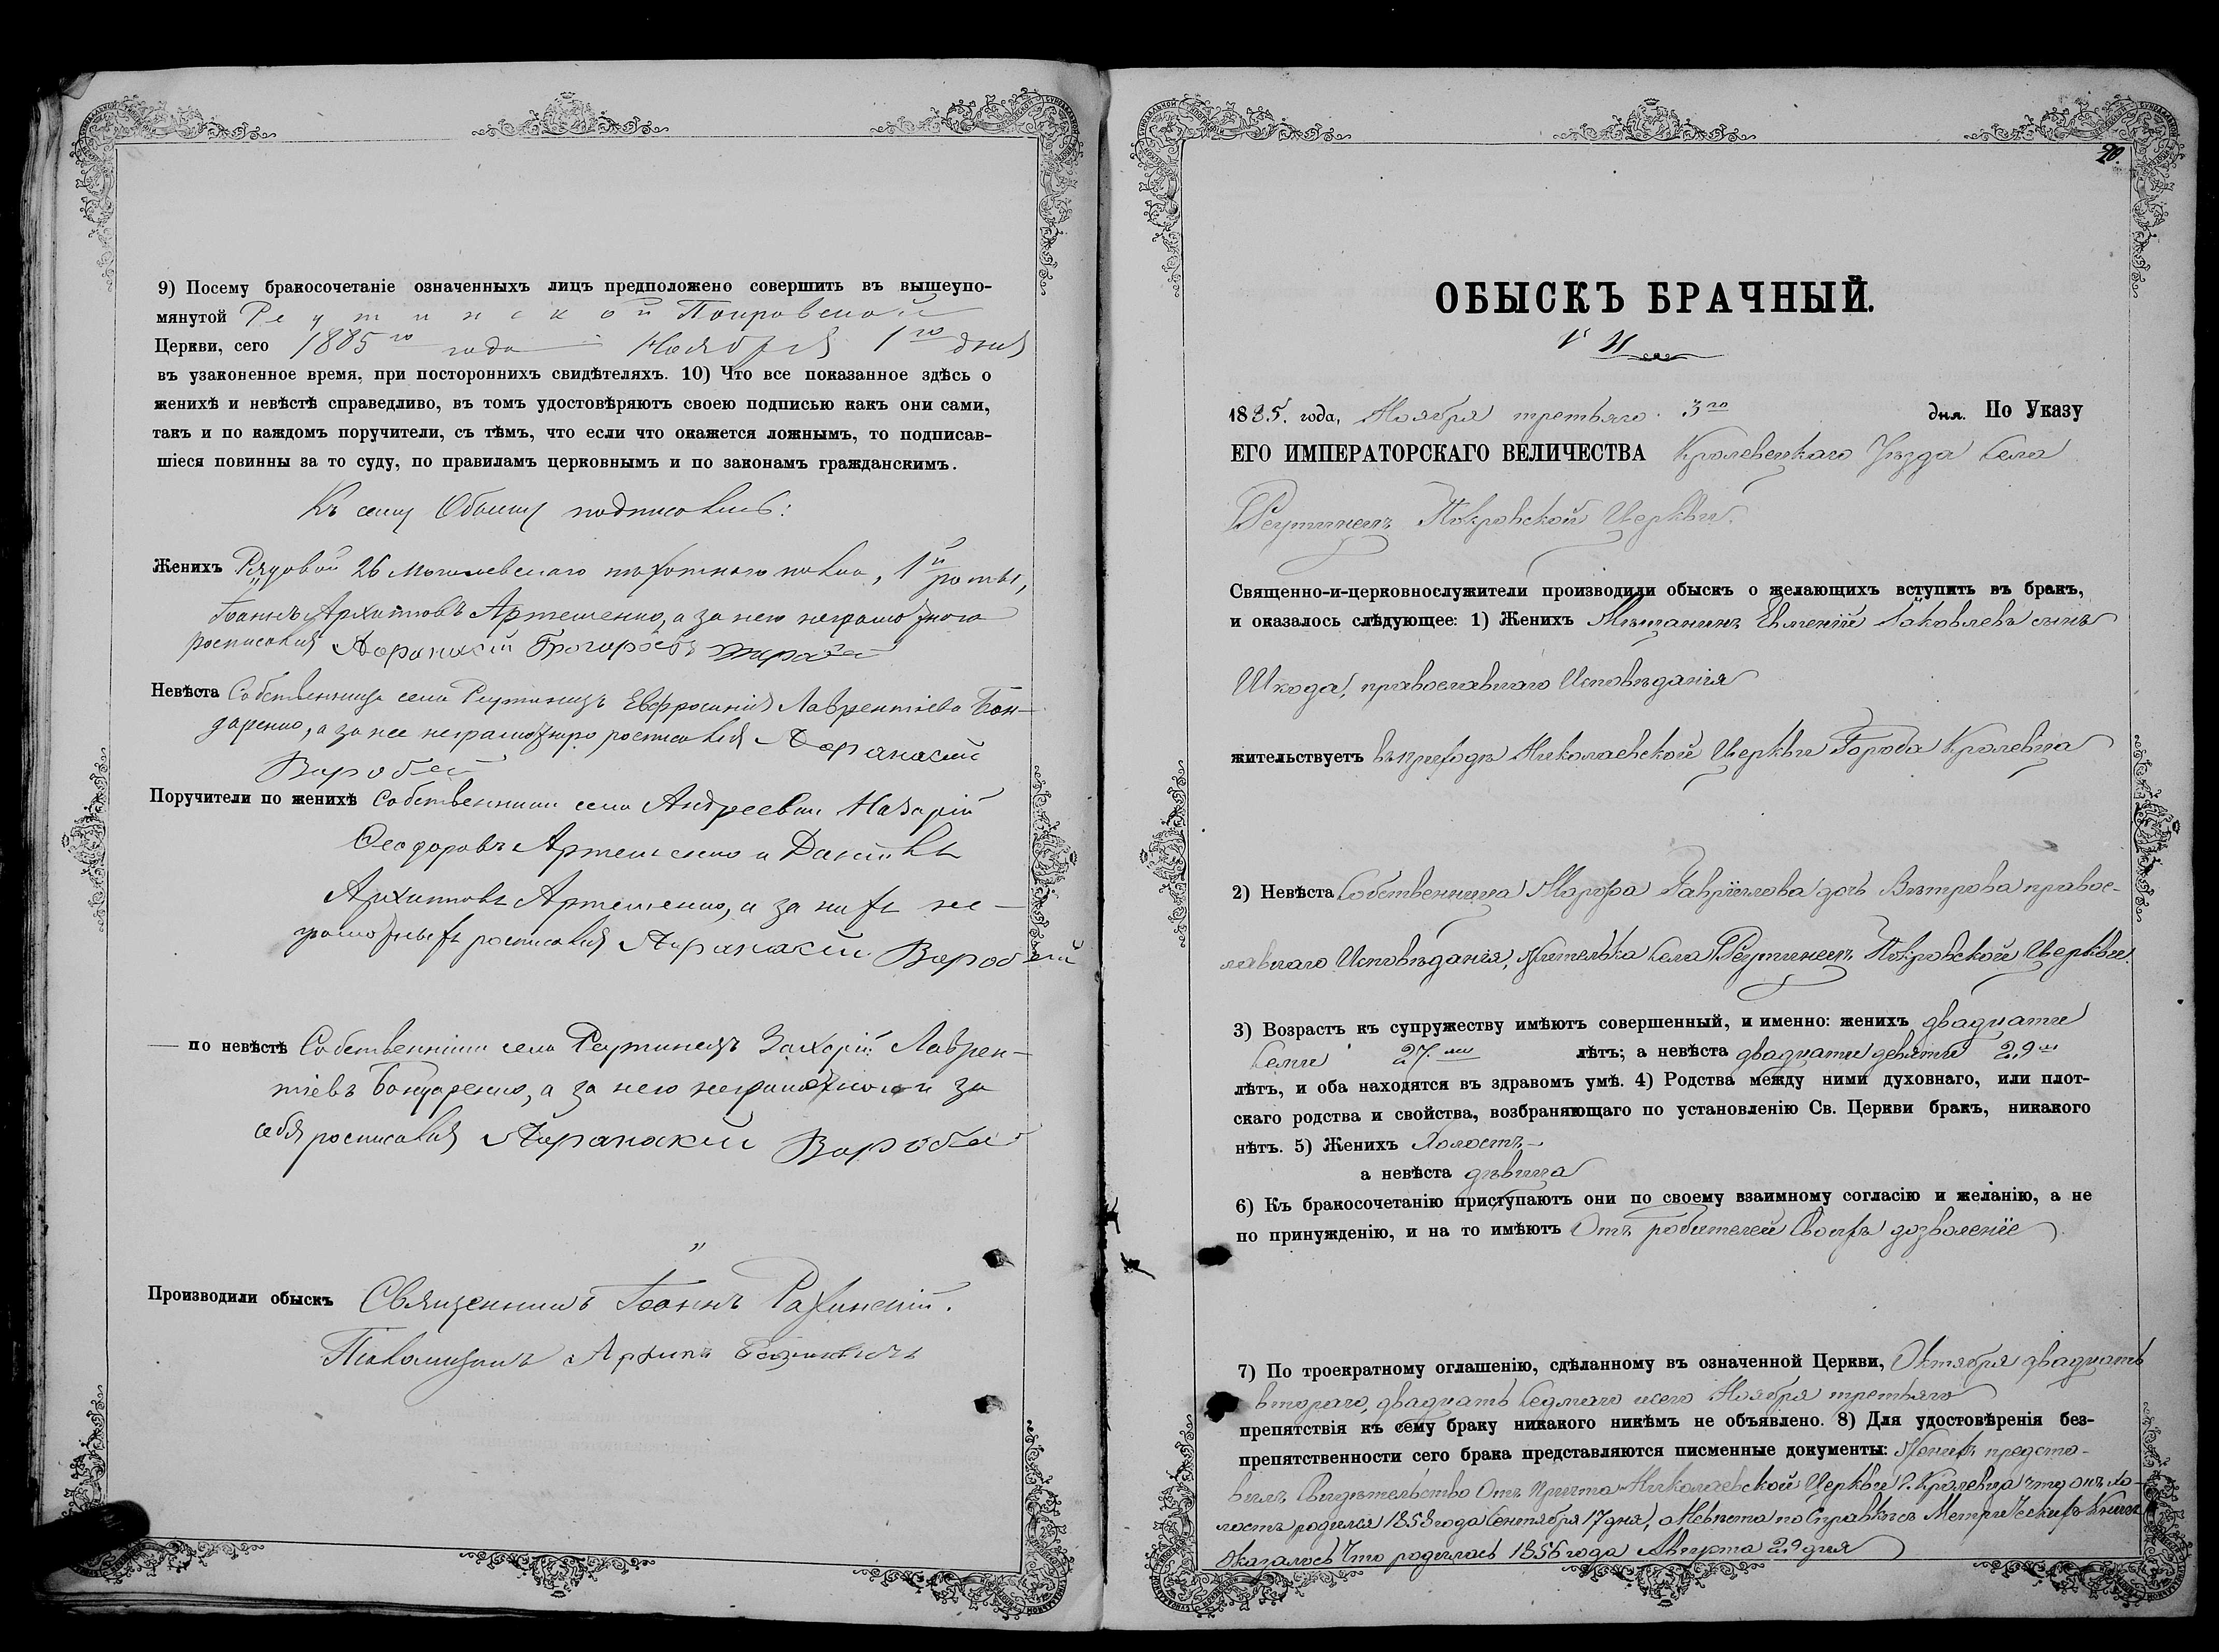 9) Посему бракосочетаніе означенныхъ лицъ предположено совершить въ вышеупо-
мянутой Реутинской Покровской
Церкви, сего 1885го года Ноября 1го дня
въ узаконенное время, при постороннихъ свидѣтеляхъ. 10) Что все показанное здѣсь о
женихѣ и невѣстѣ справедливо, въ томъ удостовѣряютъ своею подписью какъ они сами,
такъ и по каждомъ поручители, съ тѣмъ, что если что окажется ложнымъ, то подписав-
шіеся повинны за то суду, по правиламъ церковнымъ и по законамъ гражданскимъ.
Къ сему Обыску подписались:
Женихъ Рядовой 26 Могилевскаго пѣхотнаго полка, 1й роты,
Іоаннъ Архиповъ Артешенко, а за него неграмотнаго
росписался Афанасій
Невѣста Собственница села Реутинецъ Евфросинія Лаврентіева Бон-
даренко, а за нее неграмотную росписался Афанасій
Воробей
Поручители по женихѣ Собственники села Андреевки Назарій
Феодоровъ Артешенко и Даніилъ
Архиповъ Артешенко, а за нихъ не-
грамотныхъ росписался Афанасій Воробей
— по невѣстѣ Собственникъ села Реутинецъ Захарій Лаврен-
тіевъ Бондаренко, а за него неграмотнаго и за
себя росписался Афанасій Воробей
Производили обыскъ Священникъ Іоаннъ
Псаломщикъ
20.
ОБЫСКЪ БРАЧНЫЙ.
1885. года, Ноября третьяго 3го дня. По Указу
ЕГО ИМПЕРАТОРСКАГО ВЕЛИЧЕСТВА Кролевецкаго Уѣзда Села
Реутинецъ Покровской Церкви.
Священно-и-церковнослужители производили обыскъ о желающихъ вступить въ бракъ,
и оказалось слѣдующее: 1) Женихъ Мѣщанинъ Евменій Іаковлевъ сынъ
Шкода, православнаго Исповѣданія
жительствуетъ въ приходѣ Николаевской Церкви Города Кролевца
2) Невѣста Собственница Марфа Гавріилова дочь Вѣтрова правос-
лавнаго Исповѣданія, Жителька Села Реутинецъ Покровской Церкви.
3) Возрастъ къ супружеству имѣютъ совершенный, и именно: женихъ двадцати
семи 27.ми лѣтъ; а невѣста двадцати девяти 29ти
лѣтъ, и оба находятся въ здравомъ умѣ. 4) Родства между ними духовнаго, или плот-
скаго родства и свойства, возбраняющаго по установленію Св. Церкви бракъ, никакого
нѣтъ. 5) Женихъ Холостъ
а невѣста дѣвица
6) Къ бракосочетанію приступаютъ они по своему взаимному согласію и желанію, а не
по принужденію, и на то имѣютъ Отъ родителей Своихъ дозволеніе
7) По троекратному оглашенію, сдѣланному въ означенной Церкви, Октября двадцать
втораго, двадцать седмаго и сего Ноября третьяго
препятствія къ сему браку никакого никѣмъ не объявлено. 8) Для удостовѣренія без-
препятственности сего брака представляются писменные документы: Женихъ предста-
вилъ Свидѣтельство Отъ Причта Николаевской Церкви Г. Кролевца что онъ хо-
лостъ родился 1858 года Сентября 17 дня, а Невѣста по Справкѣ съ Метрическихъ Книгъ
Оказалось Что родилась 1856 года Августа 29 дня